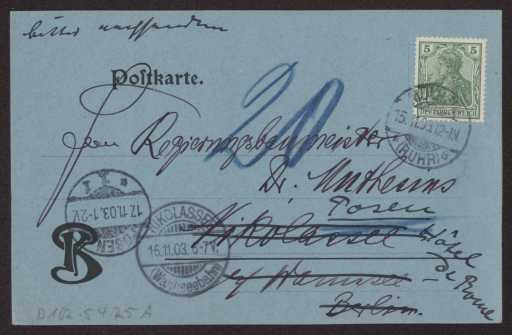 bitte nachsenden
Postkarte.
5
DEUTSCHES REICH
20
Herrn Regierungsbaumeister
Dr. Muthesius
Posen
Nikolassee
Hôtel
de Rome
b/ Wannsee
Berlin.
15.11.03.
(RUHR)
17.11.03.1-2V.
POSEN
NIKOLASSEE
16.11.03. 6-7V.
(Wannseebahn)
D102-5425A